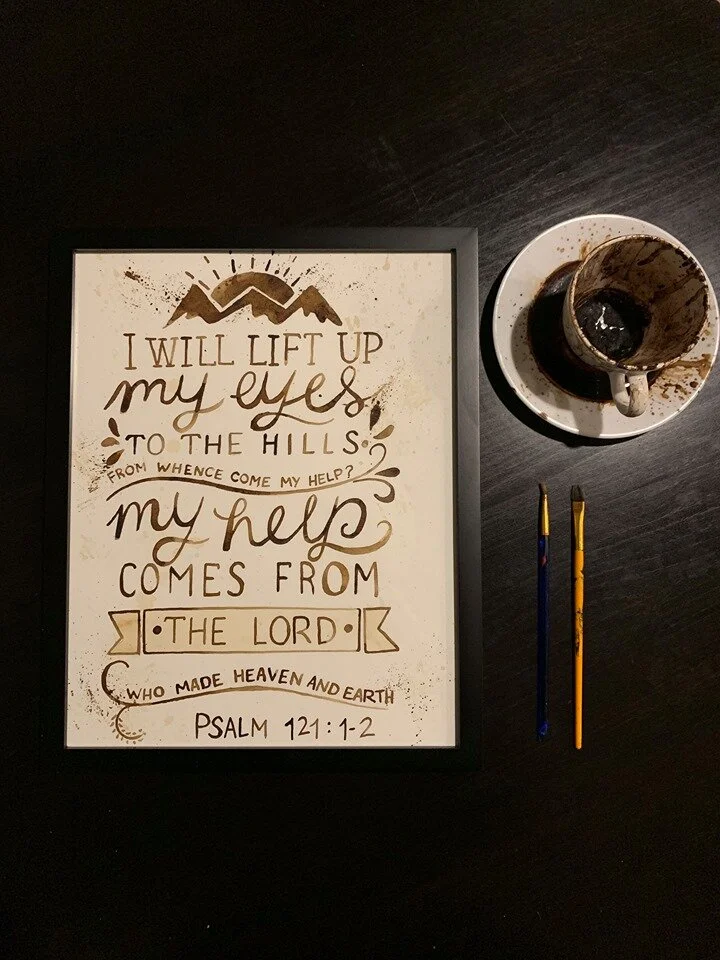 I WILL LIFT UP
my eyes
TO THE HILLS
FROM WHENCE COME MY HELP?
my help
COMES FROM
•THE LORD•
WHO MADE HEAVEN AND EARTH
PSALM 121:1-2